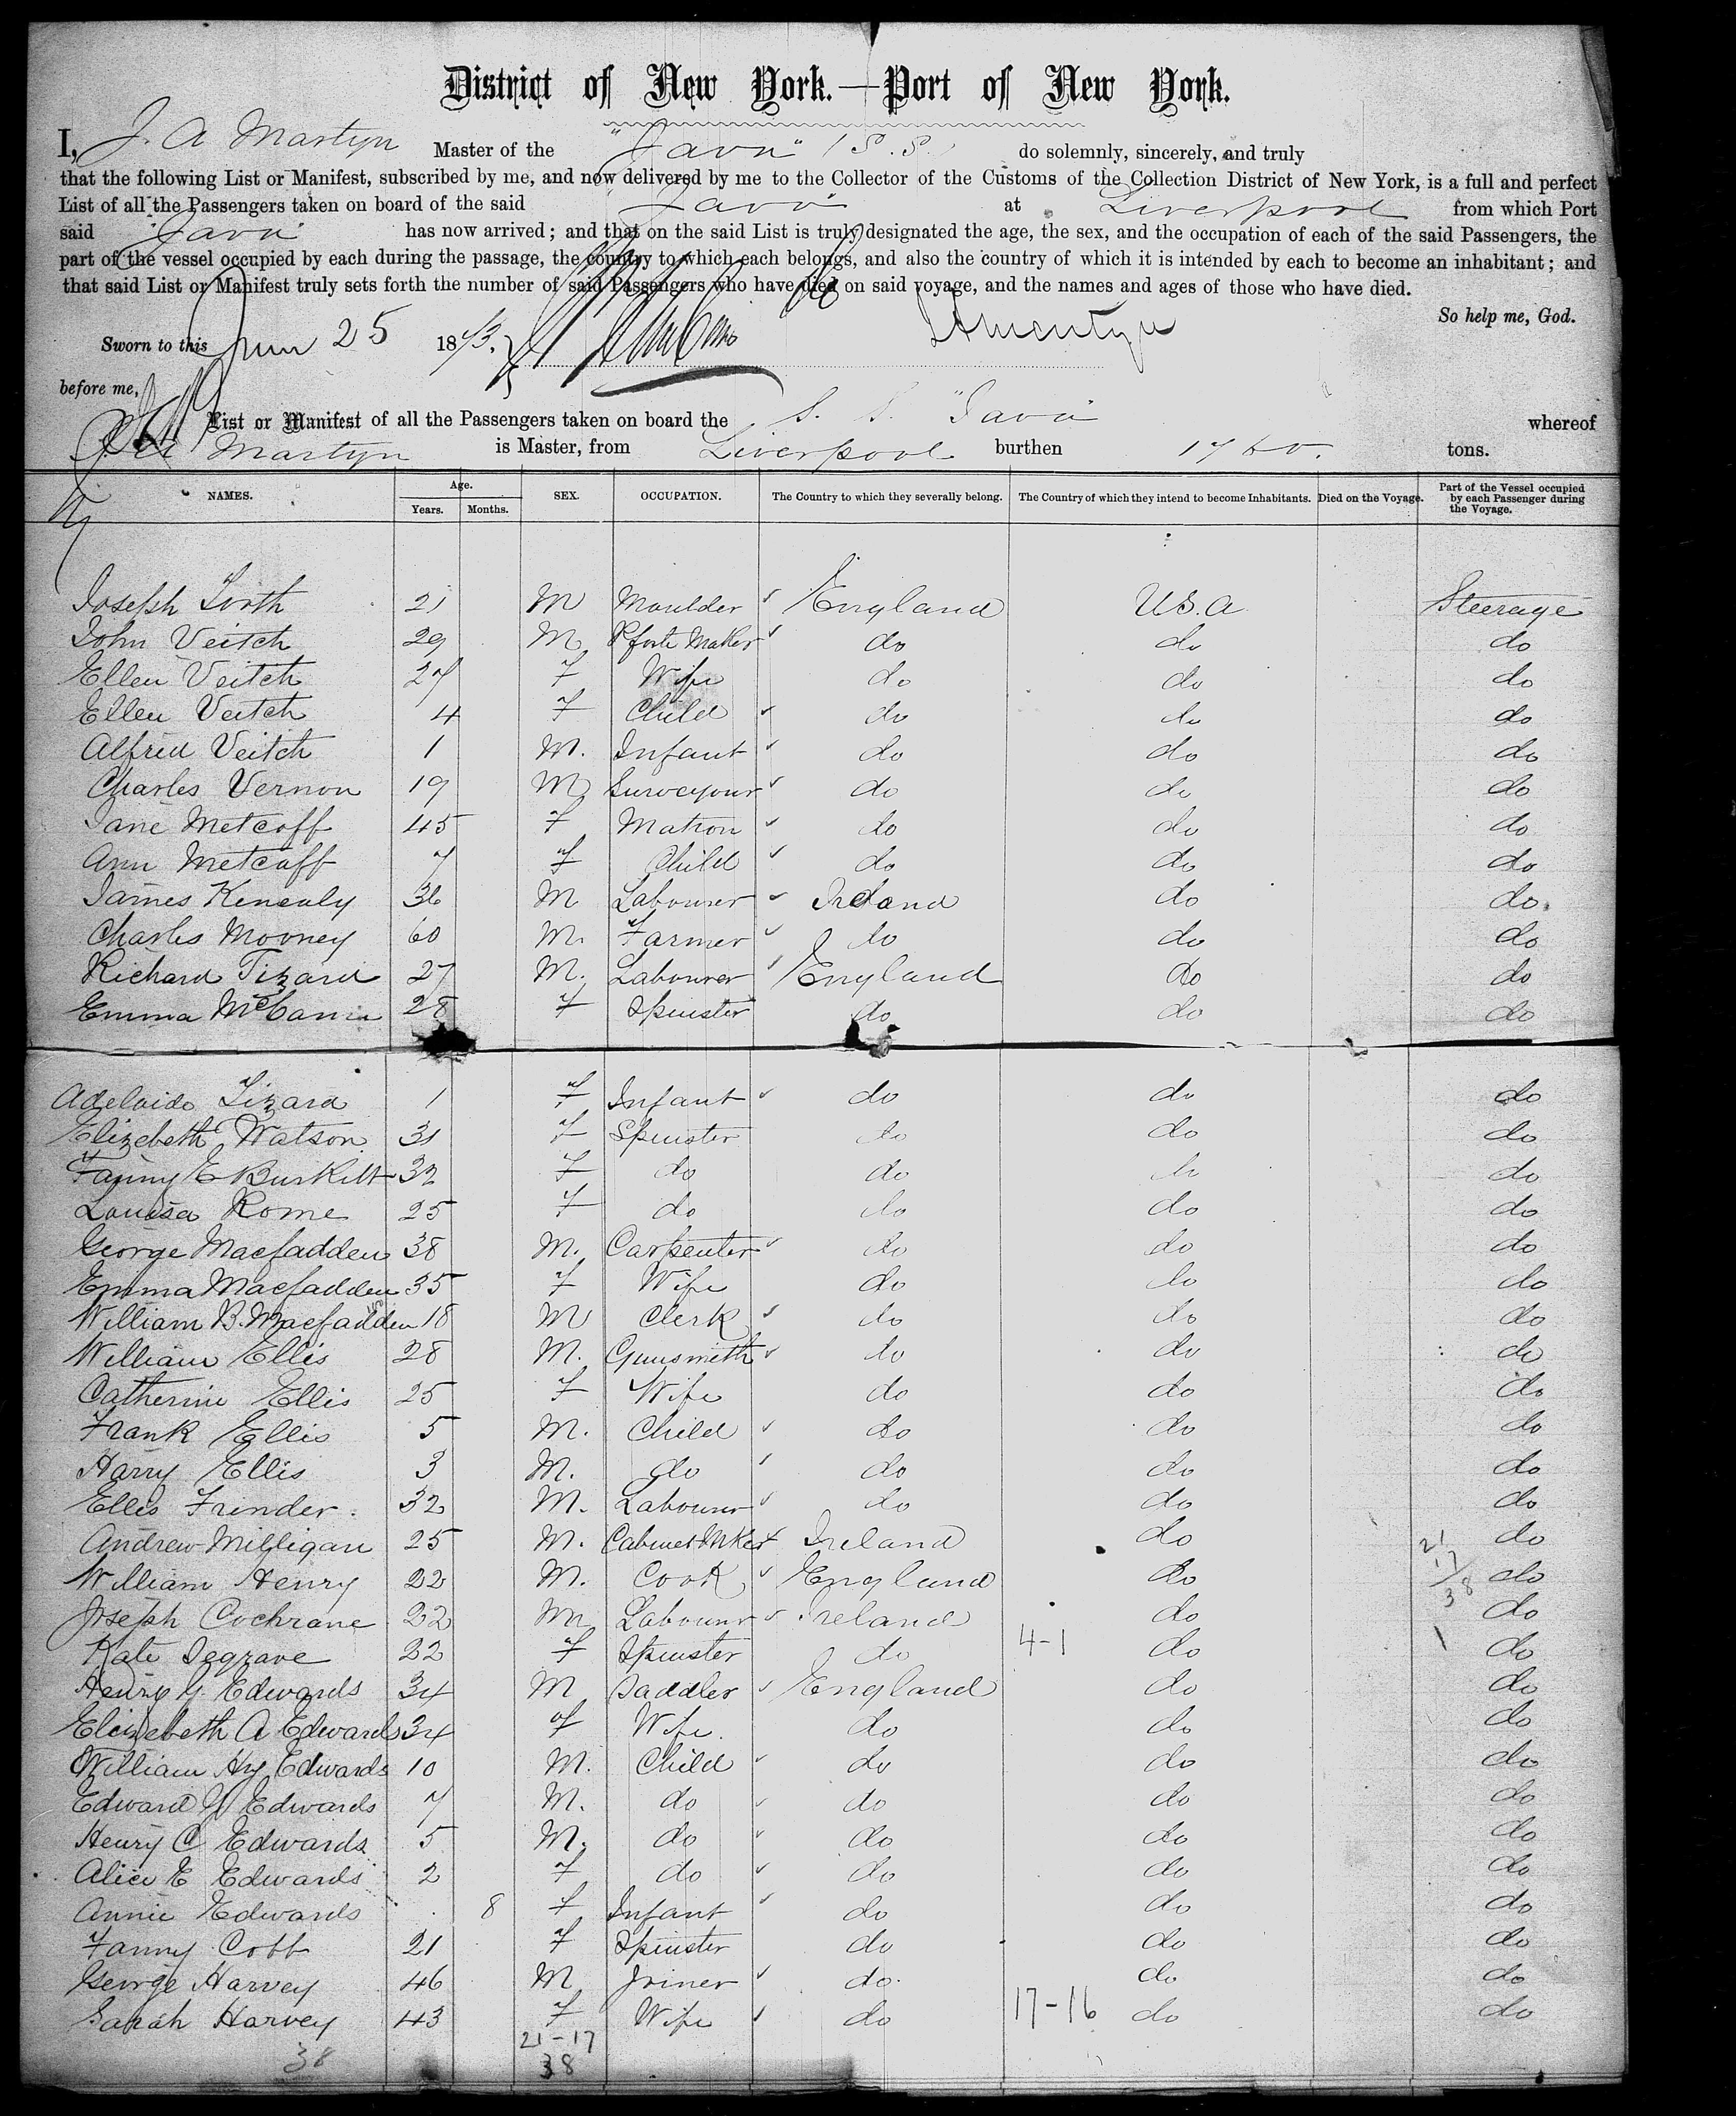 District of New York.—Port of New York.
I, J. A Martyn Master of the "Java" (S.S.) do solemnly, sincerely, and truly
that the following List or Manifest, subscribed by me, and now delivered by me to the Collector of the Customs of the Collection District of New York, is a full and perfect
List of all the Passengers taken on board of the said Java at Liverpool from which Port
said "Java" has now arrived; and that on the said List is truly designated the age, the sex, and the occupation of each of the said Passengers, the
part of the vessel occupied by each during the passage, the country to which each belongs, and also the country of which it is intended by each to become an inhabitant; and
that said List or Manifest truly sets forth the number of said Passengers who have died on said voyage, and the names and ages of those who have died.
So help me, God.
Sworn to this June 25 1873. JAMartyn
before me,
List or Manifest of all the Passengers taken on board the S. S. "Java" whereof
J. A Martyn is Master, from Liverpool burthen 1760. tons.
NAMES. Age. Years. Months. SEX. OCCUPATION. The Country to which they severally belong. The Country of which they intend to become Inhabitants. Died on the Voyage. Part of the Vessel occupied by each Passenger during the Voyage.
Joseph 21 M Moulder England U.S.A Steerage
John Veitch 29 M Pforte Maker do do do
Ellen Veitch 27 F Wife do do do
Ellen Veitch 4 F Child do do do
Alfred Veitch 1 M. Infant do do do
Charles Vernon 19 M Surveyour do do do
Jane Metcaff 45 F Matron do do do
Ann Metcaff 7 F Child do do do
James Kenealy 36 M Labourer Ireland do do
Charles Mooney 60 M. Farmer do do do
Richard Tizard 27 M. Labourer England do do
Emma McCann 28 F Spinster do do do
Adelaide Tizard 1 F Infant do do do
Elizebeth Watson 31 F Spinster do do do
Fanny E Burkitt 32 F do do do do
Louisa Rome 25 F do do do do
George Macfadden 38 M. Carpenter do do do
Emma Macfadden 35 F Wife do do do
William B. Macfadden 18 M Clerk do do do
William Ellis 28 M. Gunsmith do do do
Catherine Ellis 25 F Wife do do do
Frank Ellis 5 M. Child do do do
Harry Ellis 3 M. do do do do
Ellis Frinder 32 M. Labourer do do do
Andrew Milligan 25 M. Cabinet Mker Ireland do 21 do
William Henry 22 M. Cook England do 17 do
Joseph Cochrane 22 M Labourer Ireland do 38 do
Kate Segrave 22 F Spinster do 4-1 do 1 do
Henry G. Edwards 34 M Saddler England do do
Elizebeth A Edwards 34 F Wife do do do
William Hy Edwards 10 M. Child do do do
Edward G Edwards 7 M. do do do do
Henry C Edwards 5 M. do do do do
Alice E Edwards 2 F do do do do
Annie Edwards 8 F Infant do do do
Fanny Cobb 21 F Spinster do do do
George Harvey 46 M Joiner do. do do
Sarah Harvey 43 F Wife do 17-16 do do
21-17
38 38